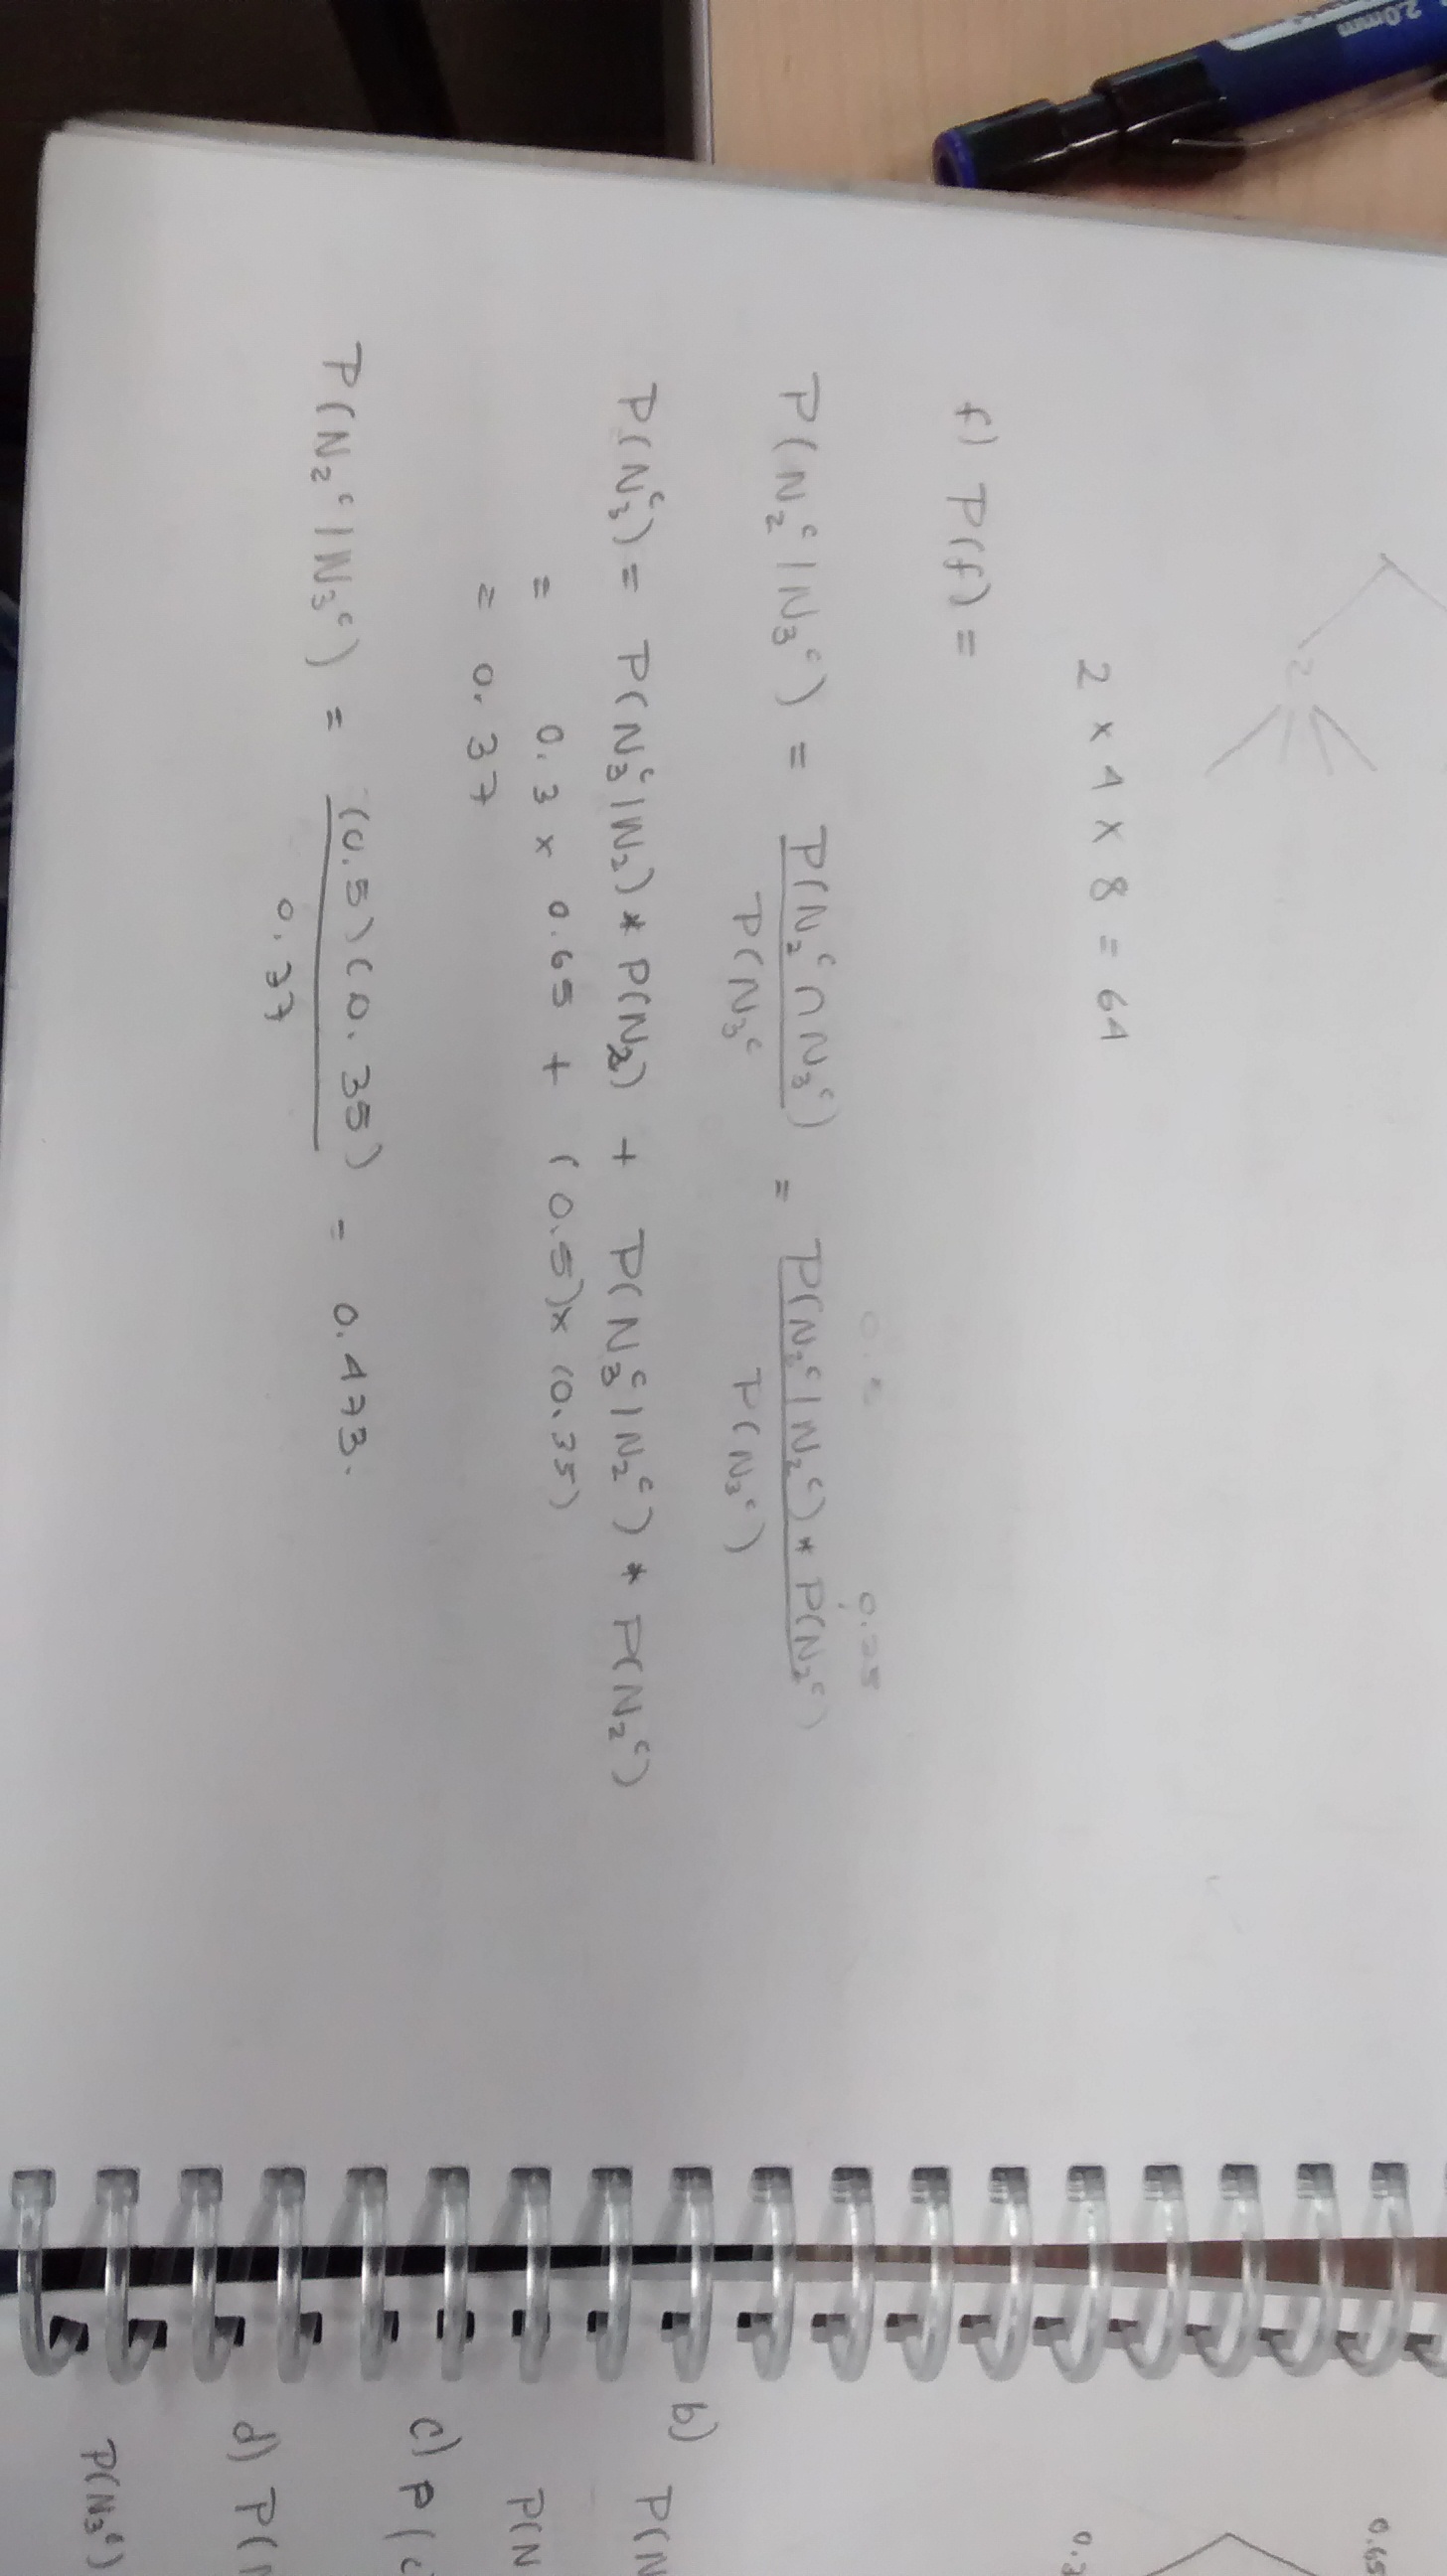 2.0mm
2
2 x 4 x 8 = 64
f) P(f) =
0.5 0.35
P(N₂ᶜ | N₃ᶜ) = P(N₂ᶜ ∩ N₃ᶜ) = P(N₃ᶜ | N₂ᶜ) * P(N₂ᶜ)
P(N₃ᶜ P(N₃ᶜ)
P(N₃ᶜ) = P(N₃ᶜ | N₂) * P(N₂) + P(N₃ᶜ | N₂ᶜ) * P(N₂ᶜ)
= 0.3 x 0.65 + (0.5) x (0.35)
= 0.37
P(N₂ᶜ | N₃ᶜ) = (0.5)(0.35) = 0.473.
0.37
0.65
0.3
b) P(N
P(N
c) P(
d) P(
P(N₃ᶜ)